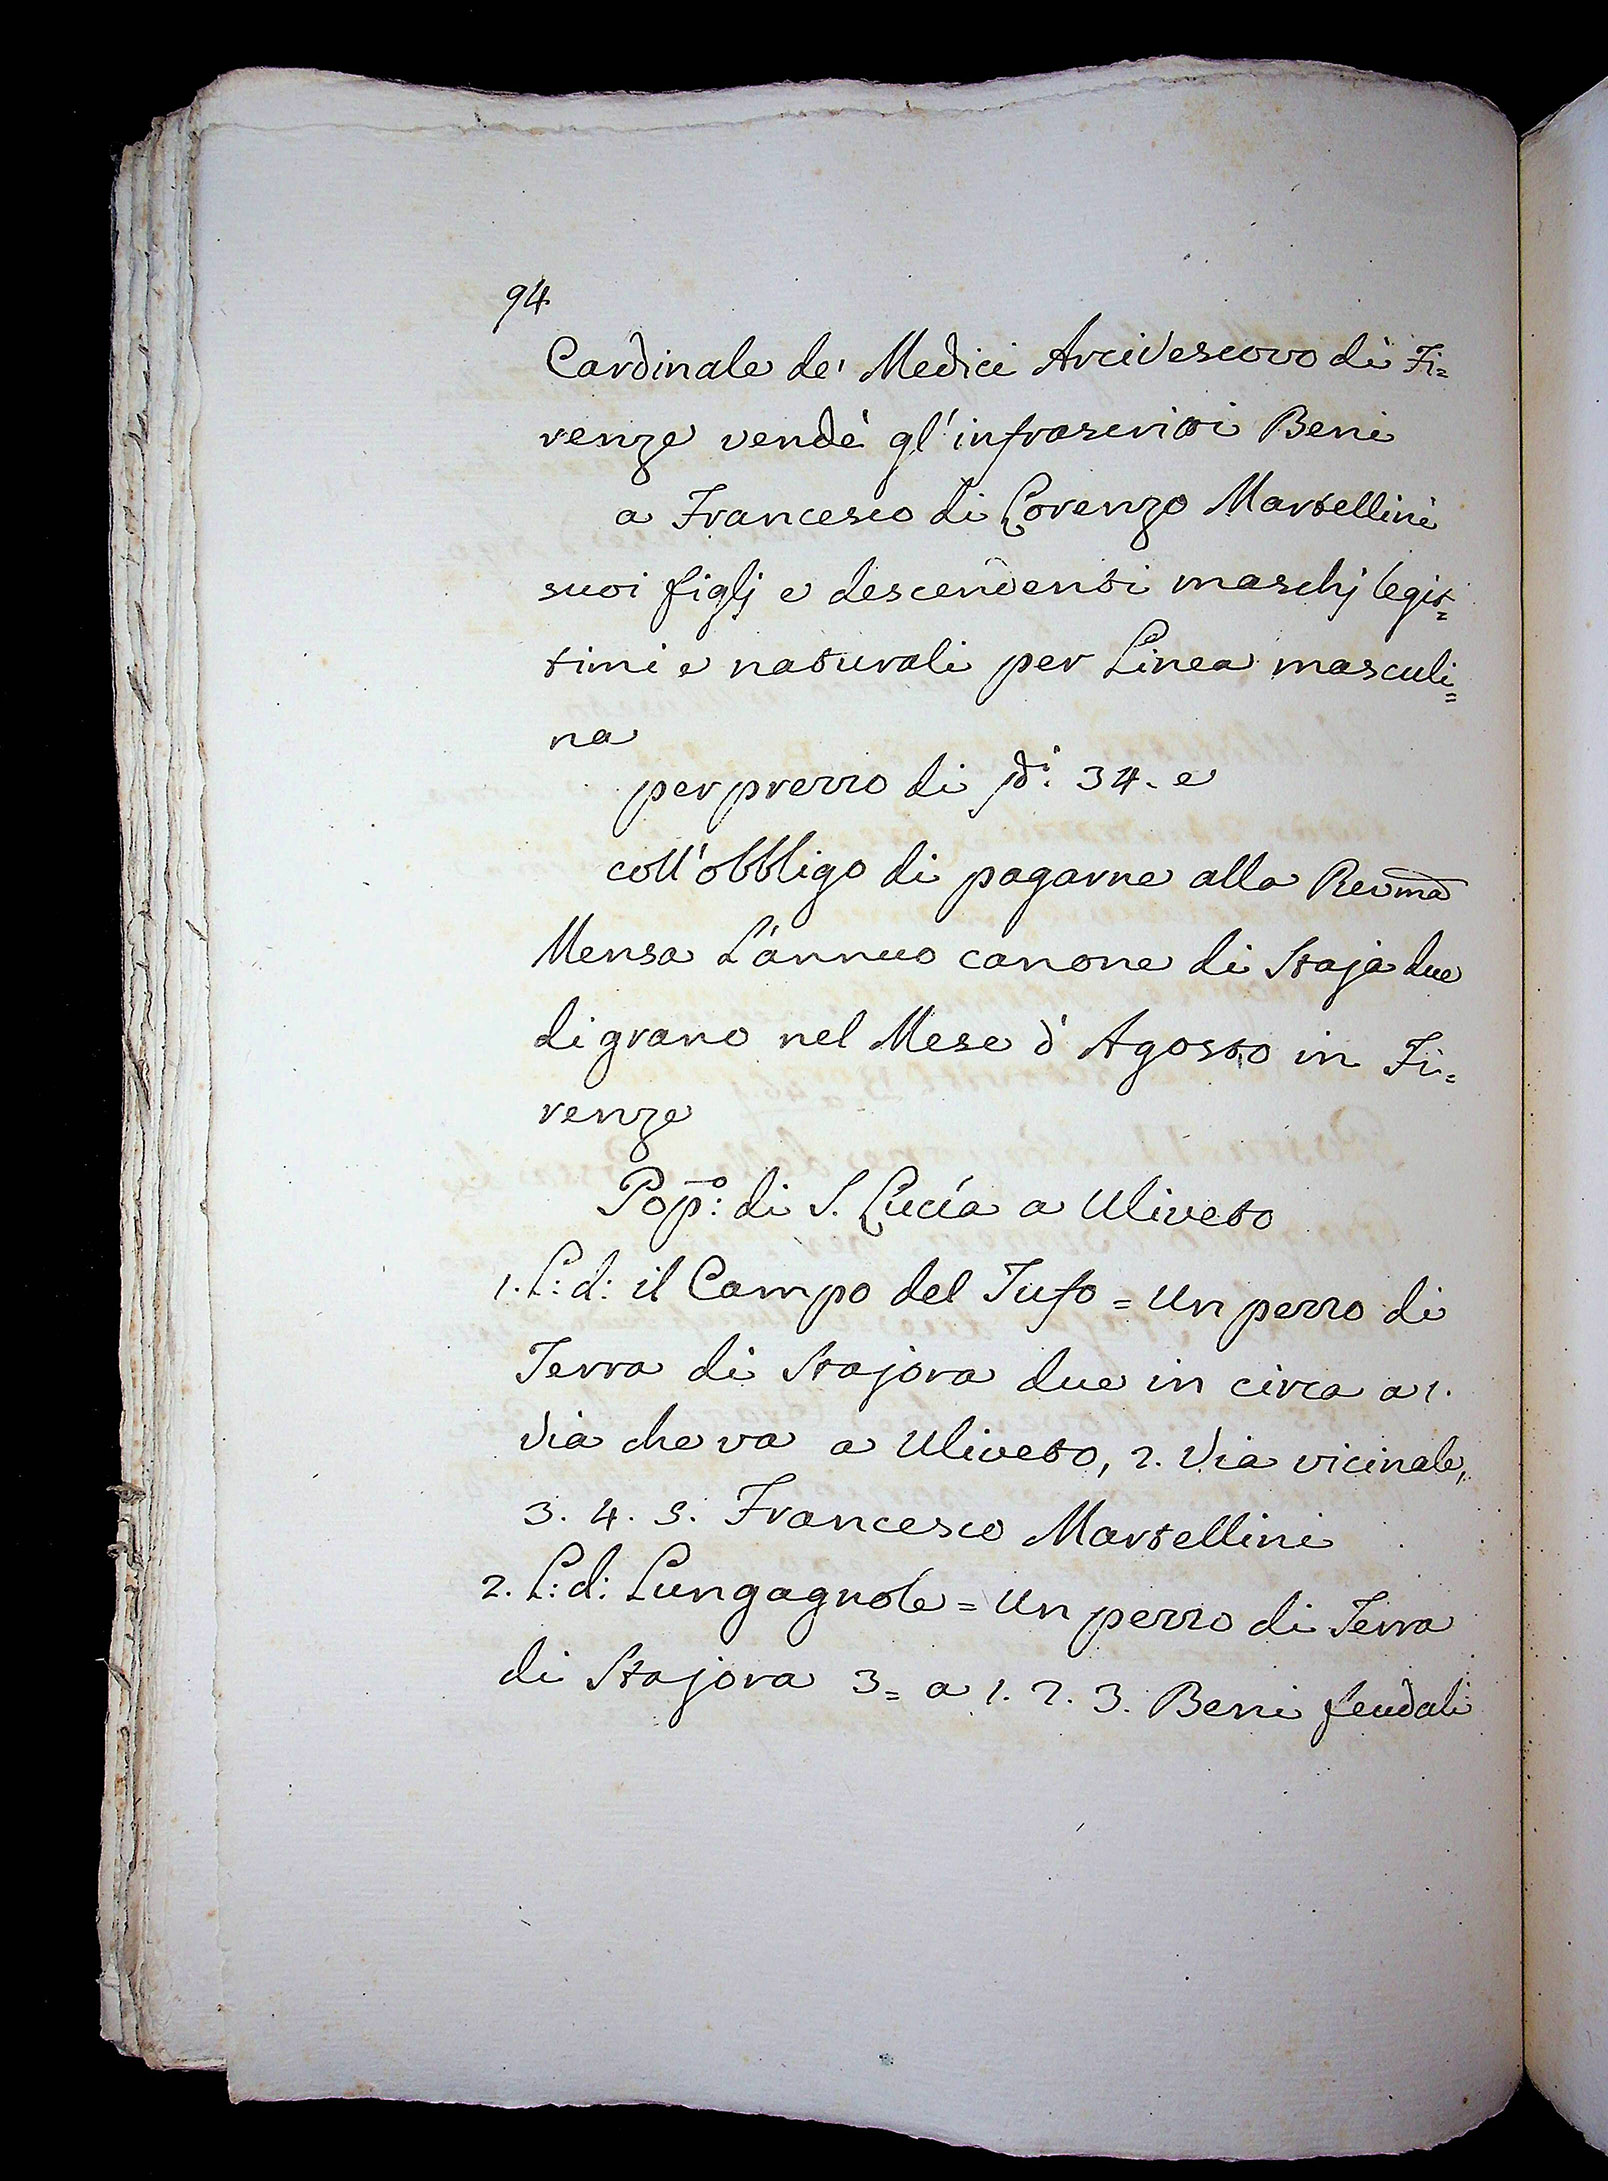 94
Cardinale de' Medici Arcivescovo di Fi=
renze vendè gl'infrascritti Beni
a Francesco di Lorenzo Martellini
suoi figlj e descendenti maschj legit=
timi e naturali per Linea masculi=
na
per prezzo di 34. e
coll'obbligo di pagarne alla Revma
Mensa L'annuo canone di Staja due
di grano nel Mese d'Agosto in Fi=
renze
Pop.o: di S. Lucia a Uliveto
1. L: d: il Campo del Tufo = Un pezzo di
Terra di Stajora due in circa a 1.
Via che va a Uliveto, 2. Via vicinale,
3. 4. 5. Francesco Martellini
2. L: d: Lungagnole = Un pezzo di Terra
di Stajora 3 = a 1. 2. 3. Beni feudali